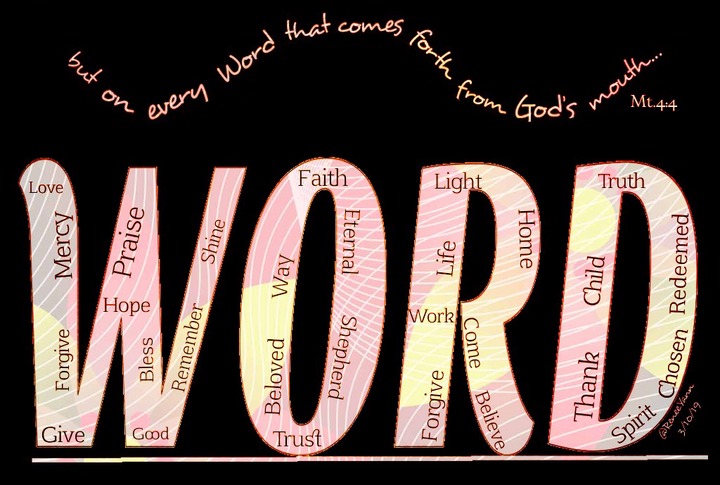 but on every Word that comes forth from God's mouth...
Mt.4:4
WORD
Love
Mercy
Forgive
Give
Praise
Hope
Bless
Good
Shine
Remember
Faith
Way
Eternal
Beloved
Shepherd
Trust
Light
Life
Home
Work
Come
Forgive
Believe
Truth
Child
Redeemed
Thank
Chosen
Spirit
@ReneeYann
3/10/19